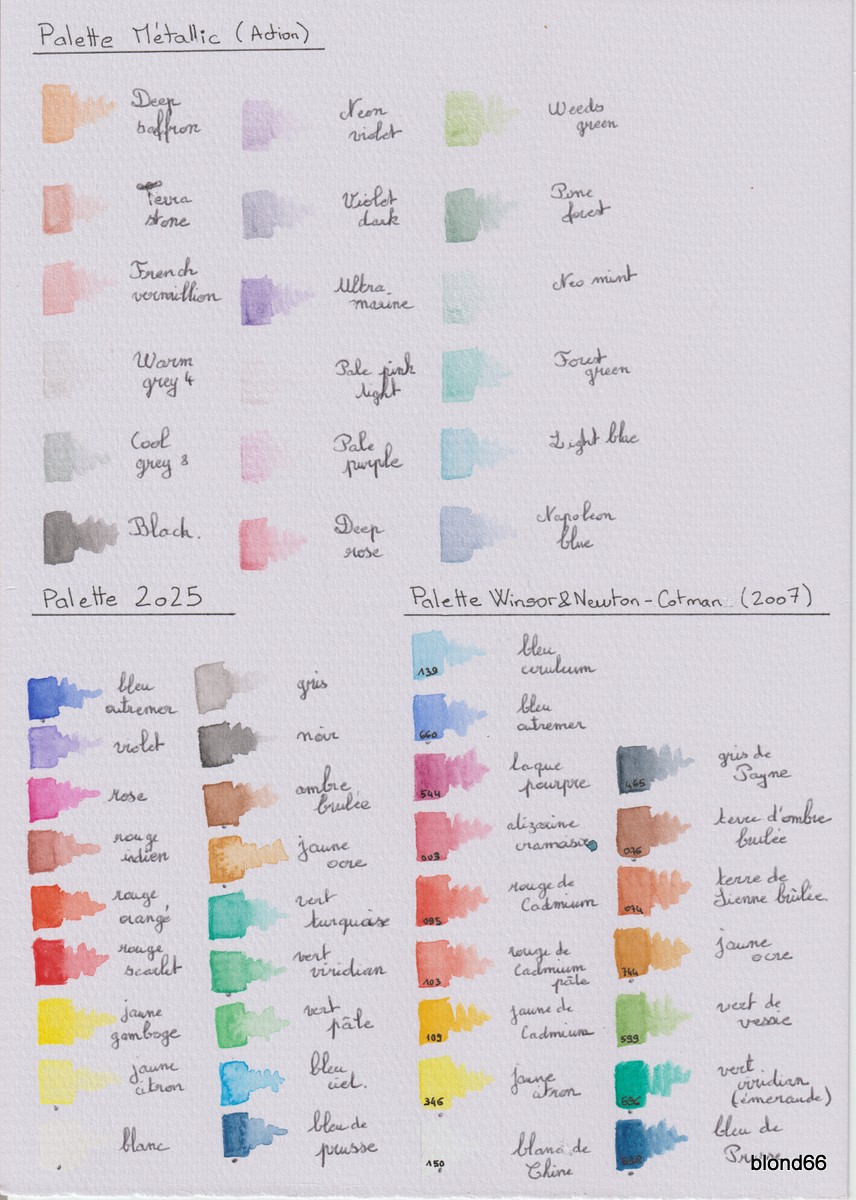 Palette Métallic (Action)
Deep
saffron
Neon
violet
Weeds
green
Terra
stone
Violet
dark
Pine
forest
French
vermillion
Ultra-
marine
Neo mint
Warm
grey 4
Pale pink
light
Forest
green
Cool
grey 8
Pale
purple
Light blue
Black.
Deep
rose
Napoleon
blue
Palette 2025
bleu
outremer
violet
rose
rouge
indien
rouge
orangé
rouge
scarlet
jaune
gamboge
jaune
citron
blanc
gris
noir
ombre
brulée
jaune
ocre
vert
turquoise
vert
viridian
vert
pâle
bleu
ciel.
bleu de
prusse
Palette Winsor&Newton-Cotman (2007)
139
bleu
ceruleum
660
bleu
outremer
544
laque
pourpre
003
alizarine
cramoisie
095
rouge de
Cadmium
103
rouge de
Cadmium
pâle
109
jaune de
Cadmium
346
jaune
citron
150
blanc de
Chine
465
gris de
Payne
076
terre d'ombre
brulée
074
terre de
Sienne brûlée.
744
jaune
ocre
599
vert de
vessie
696
vert
viridian
(émeraude)
bleu de
Prusse
blond66